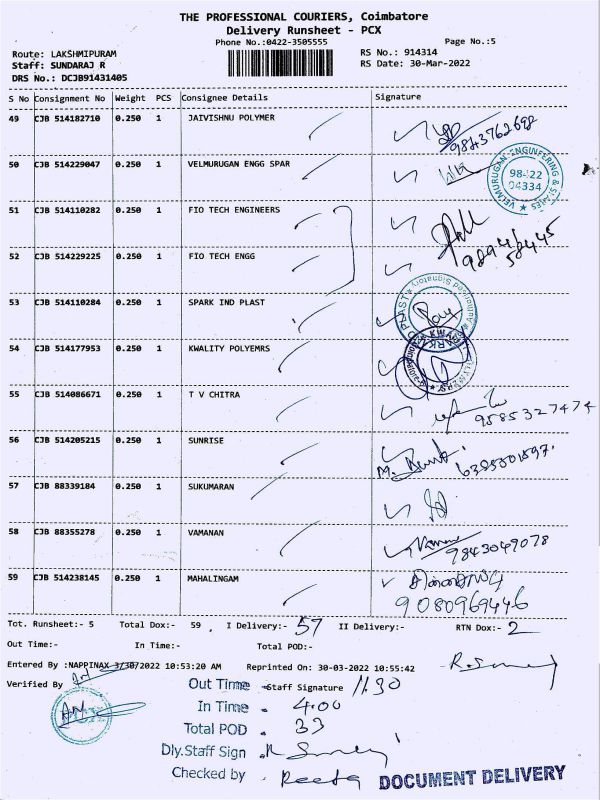 THE PROFESSIONAL COURIERS, Coimbatore
Delivery Runsheet - PCX
Phone No.:0422-3505555 Page No.:5
Route: LAKSHMIPURAM RS No.: 914314
Staff: SUNDARAJ R RS Date: 30-Mar-2022
DRS No.: DCJB91431405
S No Consignment No Weight PCS Consignee Details Signature
49 CJB 514182710 0.250 1 JAIVISHNU POLYMER
9843762698
50 CJB 514229047 0.250 1 VELMURUGAN ENGG SPAR
VELMURUGAN ENGINEERING & SPARES
04334
51 CJB 514110282 0.250 1 FIO TECH ENGINEERS
98946
58445
52 CJB 514229225 0.250 1 FIO TECH ENGG
53 CJB 514110284 0.250 1 SPARK IND PLAST
Authorised Signatory
54 CJB 514177953 0.250 1 KWALITY POLYEMRS
55 CJB 514086671 0.250 1 T V CHITRA
9585327474
56 CJB 514205215 0.250 1 SUNRISE
57 CJB 88339184 0.250 1 SUKUMARAN
58 CJB 88355278 0.250 1 VAMANAN
9843049078
59 CJB 514238145 0.250 1 MAHALINGAM
9080969446
Tot. Runsheet:- 5 Total Dox:- 59 I Delivery:- 57 II Delivery:- RTN Dox:- 2
Out Time:- In Time:- Total POD:-
Entered By :NAPPINAX 3/30/2022 10:53:20 AM Reprinted On: 30-03-2022 10:55:42
Verified By
Out Time Staff Signature 11.30
In Time 4.00
Total POD 33
Dly.Staff Sign
Checked by Reeta
DOCUMENT DELIVERY